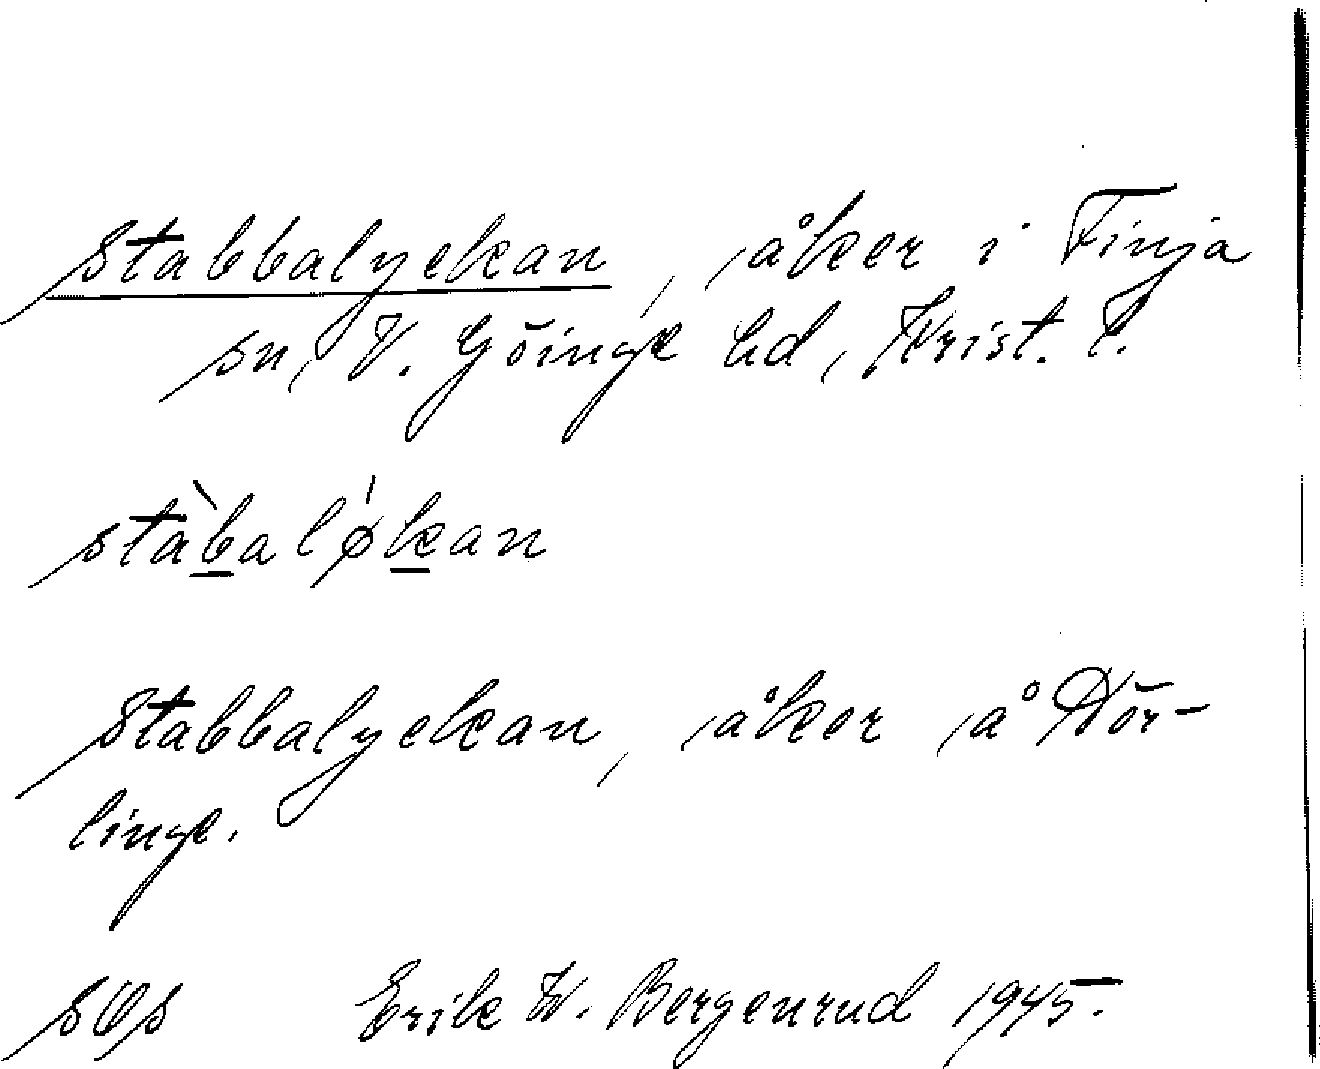 Stabbalyckan, åker i Finja
sn, V. Göinge hd, Krist. l.
stàbalǿkan
Stabbalyckan, åker å Nör-
linge.
Erik W. Bergenrud 1945.